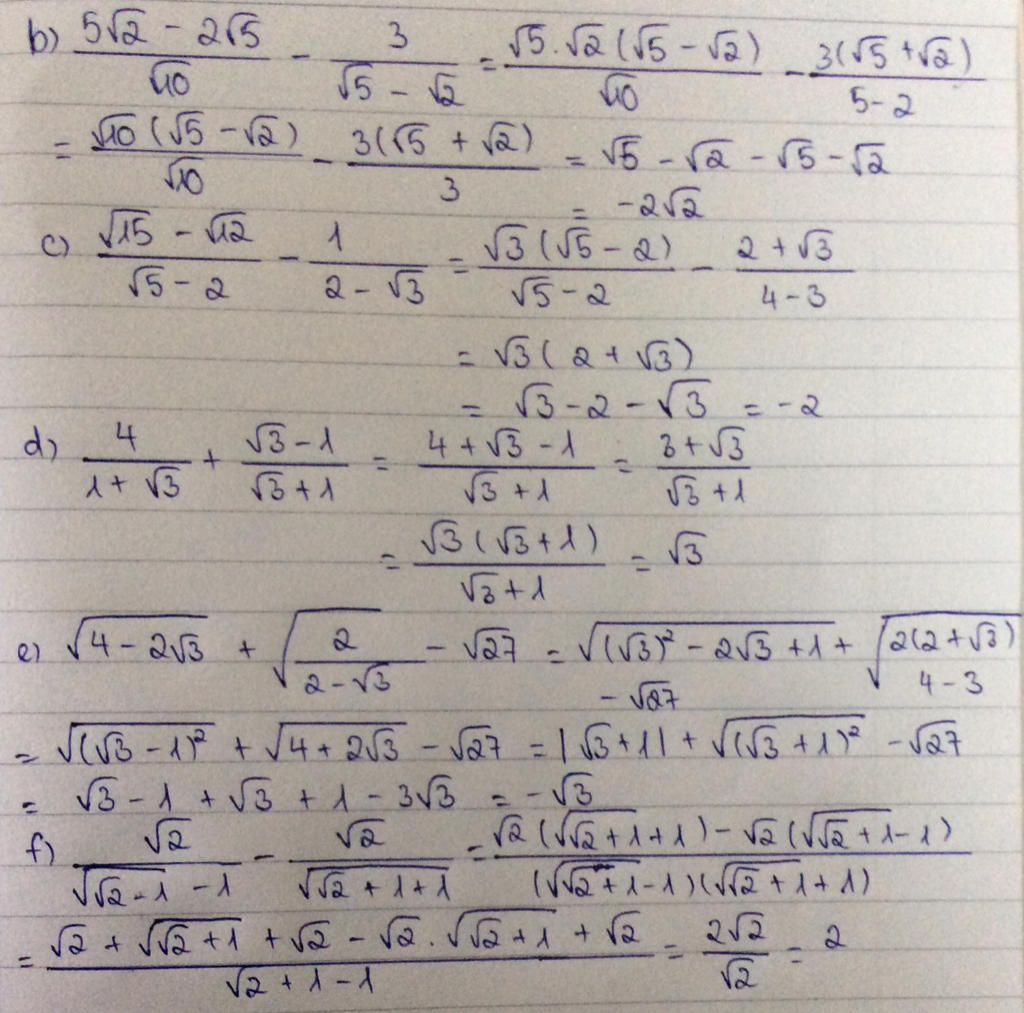 b) (5√2 - 2√5)/√10 - 3/(√5 - √2) = √5.√2(√5 - √2)/√10 - 3(√5 + √2)/(5-2)
= √10(√5 - √2)/√10 - 3(√5 + √2)/3 = √5 - √2 - √5 - √2
= -2√2
c) (√15 - √12)/(√5 - 2) - 1/(2 - √3) = √3(√5 - 2)/(√5 - 2) - (2 + √3)/(4 - 3)
= √3(2 + √3)
= √3 - 2 - √3 = -2
d) 4/(1 + √3) + (√3 - 1)/(√3 + 1) = (4 + √3 - 1)/(√3 + 1) = (3 + √3)/(√3 + 1)
= √3(√3 + 1)/(√3 + 1) = √3
e) √(4 - 2√3) + √(2/(2 - √3)) - √27 = √((√3)² - 2√3 + 1) + √(2(2 + √3)/(4 - 3))
- √27
= √((√3 - 1)²) + √(4 + 2√3) - √27 = |√3 + 1| + √((√3 + 1)²) - √27
= √3 - 1 + √3 + 1 - 3√3 = -√3
f) √2/(√(√2 - 1) - 1) - √2/(√(√2 + 1) + 1) = (√2(√(√2 + 1) + 1) - √2(√(√2 + 1) - 1))/((√(√2 + 1) - 1)(√(√2 + 1) + 1))
= (√2 + √(√2 + 1) + √2 - √2.√(√2 + 1) + √2)/(√2 + 1 - 1) = 2√2/√2 = 2